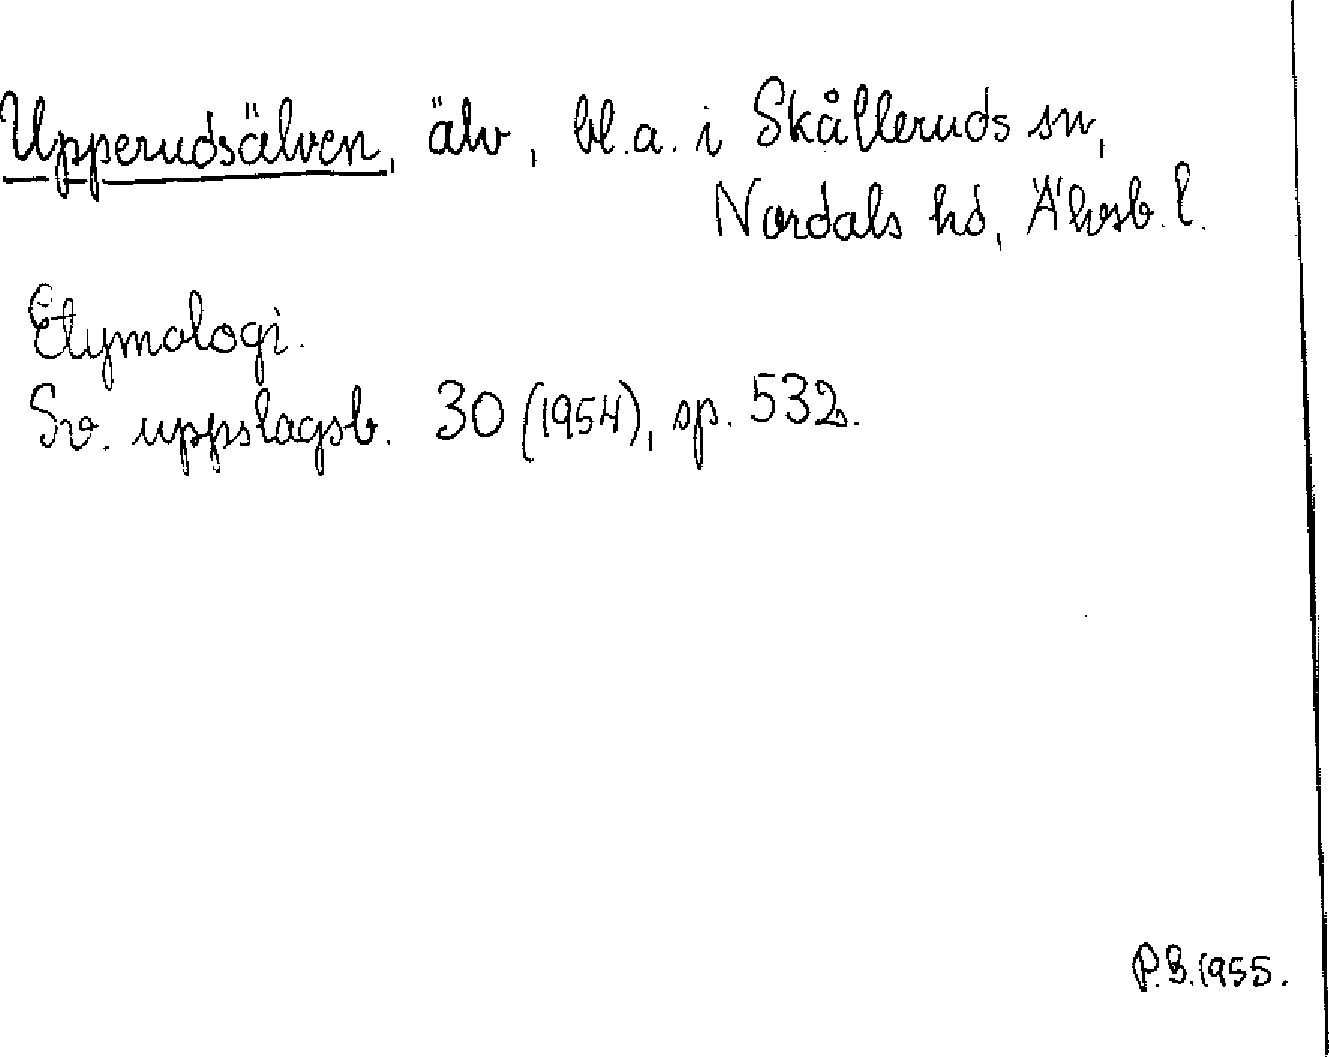 Upperudsälven, älv, bl.a. i Skålleruds sn,
Nordals hd, Älvsb. l.
Etymologi.
Sv. uppslagsb. 30 (1954), sp. 532.
P.B. 1955.